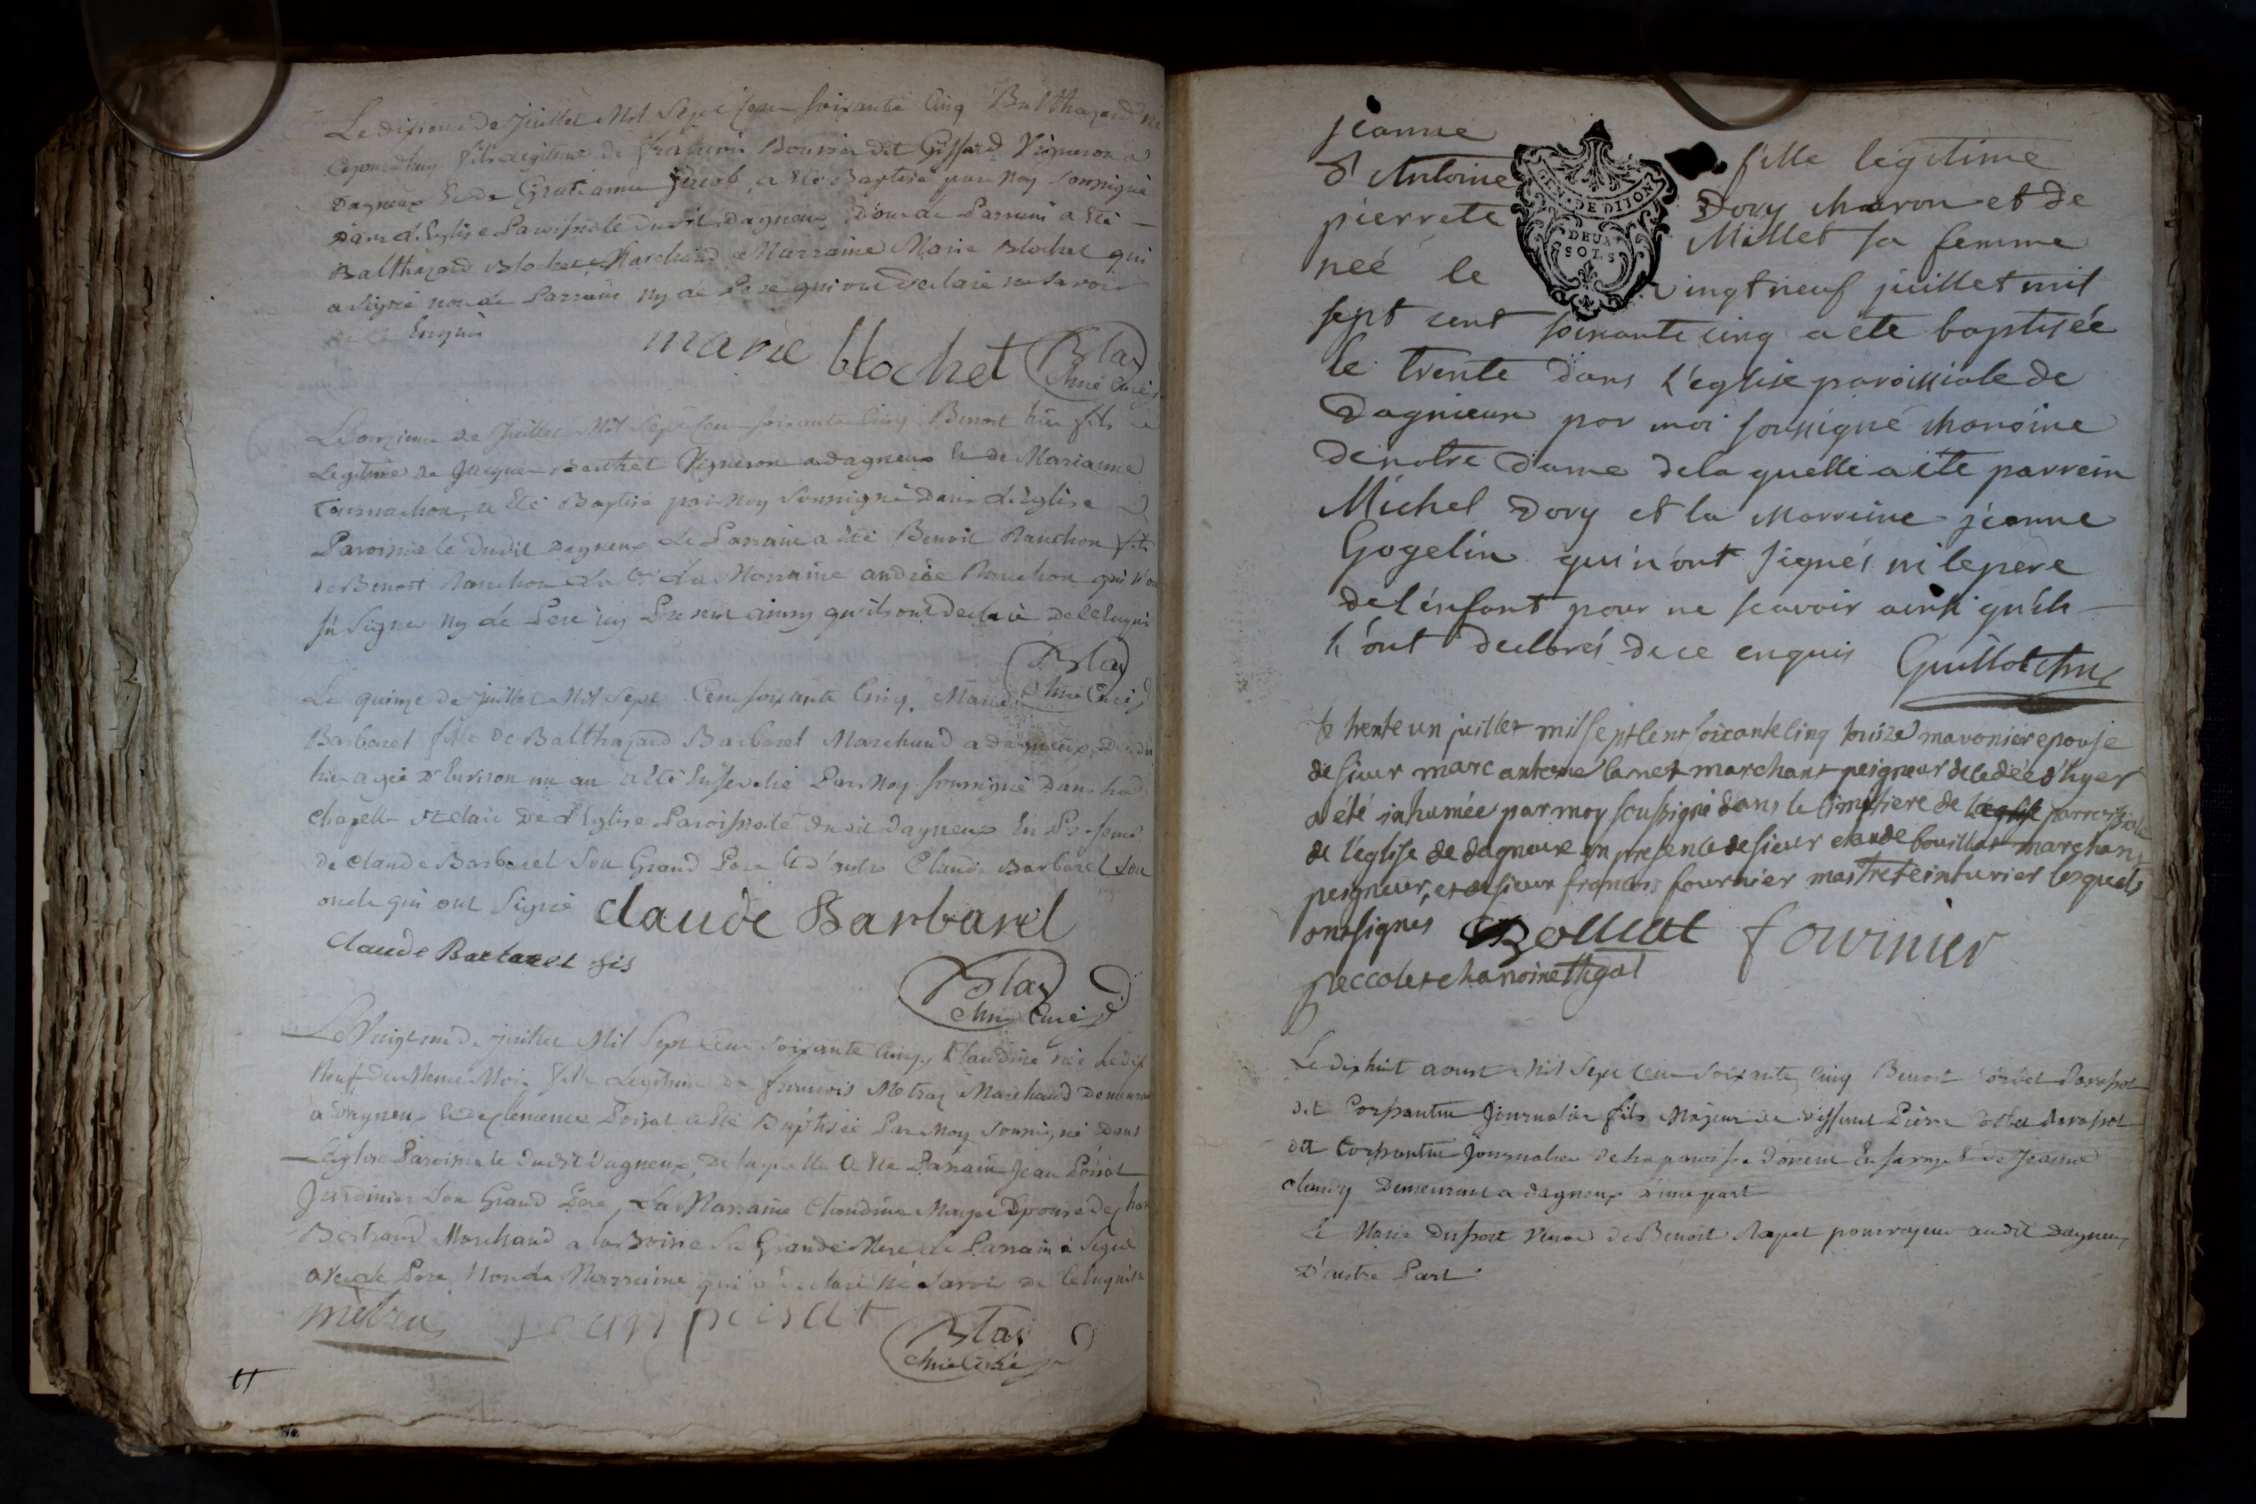 Le dixieme de juillet Mil Sept Cent soixante Cinq Balthazard né
Cejourdhuy fils Legitime de Boursier dit Giffard Vigneron a
Dagneux & de Jacob, a été Baptisé par moy soussigné
Dans L'Eglise Paroissiale dudit Dagneux, dont le Parrain a été
Balthazard Blochet Marchand & Marraine Marie Blochet qui
a signé non le Parrain ny le Pere qui ont declaré ne savoir
Enquis
marie blochet Blas
Chne Curé
Le onzieme de Juillet Mil Sept Cent soixante Cinq Benoit fils
Legitime de Jacques Berthet Vigneron a dagneux & de Marianne
Tournachon, a été Baptisé par moy soussigné dans L'Eglise
Paroissiale dudit Dagneux Le Parrain a été Benoit Ranchon fils
de Benoit Ranchon & la Marraine andrée Ranchon qui n'ont
sù signer ny le Pere Present ainsy qu'ils ont declaré de ce Enquis
Blas
Chne Curé
Le quinze de juillet Mil Sept Cent soixante Cinq, Marie
Barbaret fille de Balthazard Barbaret Marchand a dagneux,
hier agée d'Environ un an a été Ensevelie Par Moy soussigné dans la
chapelle St Clair De L'Eglise Paroissiale dudit dagneux En Presence
de Claude Barbaret Son Grand Pere & d'autre Claude Barbaret son
oncle qui ont Signé claude Barbarel
Claude Barbaret fis
Blas
Chne Curé
Le Vingt de juillet Mil Sept Cent soixante Cinq, Claudine née Le dix
Neuf du Meme Mois fille Legitime de francois Metraz Marchand demeurant
a Dagneux & de Clemence Poisat a été Baptisée Par Moy Soussigné Dans
L'Eglise Paroissiale dudit Dagneux, De laquelle a été Parrain Jean Poisat
Jardinier Son Grand Pere, La Marraine Claudine Epouse de
Bertrand Marchand a la Boisse Sa Grande Mere Le Parrain a Signé
avec le Pere Non la Marraine qui a declaré ne Savoir de ce Enquise
metra jean poisat
Blas
Chne Curé
jeanne fille legitime
d'Antoine Dory charon et de
pierrete Millet sa femme
neé le vingt neuf juillet mil
GEN. DE DIJON
DEUX
SOLS
sept cent soixante cinq a ete baptisée
le trente dans l'eglise paroissiale de
Dagnieux par moi soussigné chanoine
de notre dame de la quelle a ete parrein
Michel Dory et la Marreine jeanne
Gogelin qui n'ont signés ni le pere
de l'enfant pour ne scavoir ainsi qu'ils
l'ont declarés de ce enquis Guillot chne
le trente un juillet mil sept cent soixante cinq louize mavonier epouse
de sieur marc antoine marchant peigneur
a été inhumée par moy soussigné dans le cimetiere de l'eglise parroissiale
de l'eglise de dagneux en presence de sieur claude bouillat marchant
peigneur, et de sieur francois fournier maitre teinturier lesquels
ont signés Bolliat fournier
peccolet chanoine
Le dix huit aoust Mil Sept Cent Soixante Cinq Benoit
dit journalier fils Majeur de deffunt Pierre
dit journalier de la paroisse & de Jeanne
Demeurant a dagneux d'une part
& Marie Veuve de Benoit Rapet pourvoyeur audit Dagneux
D'autre Part